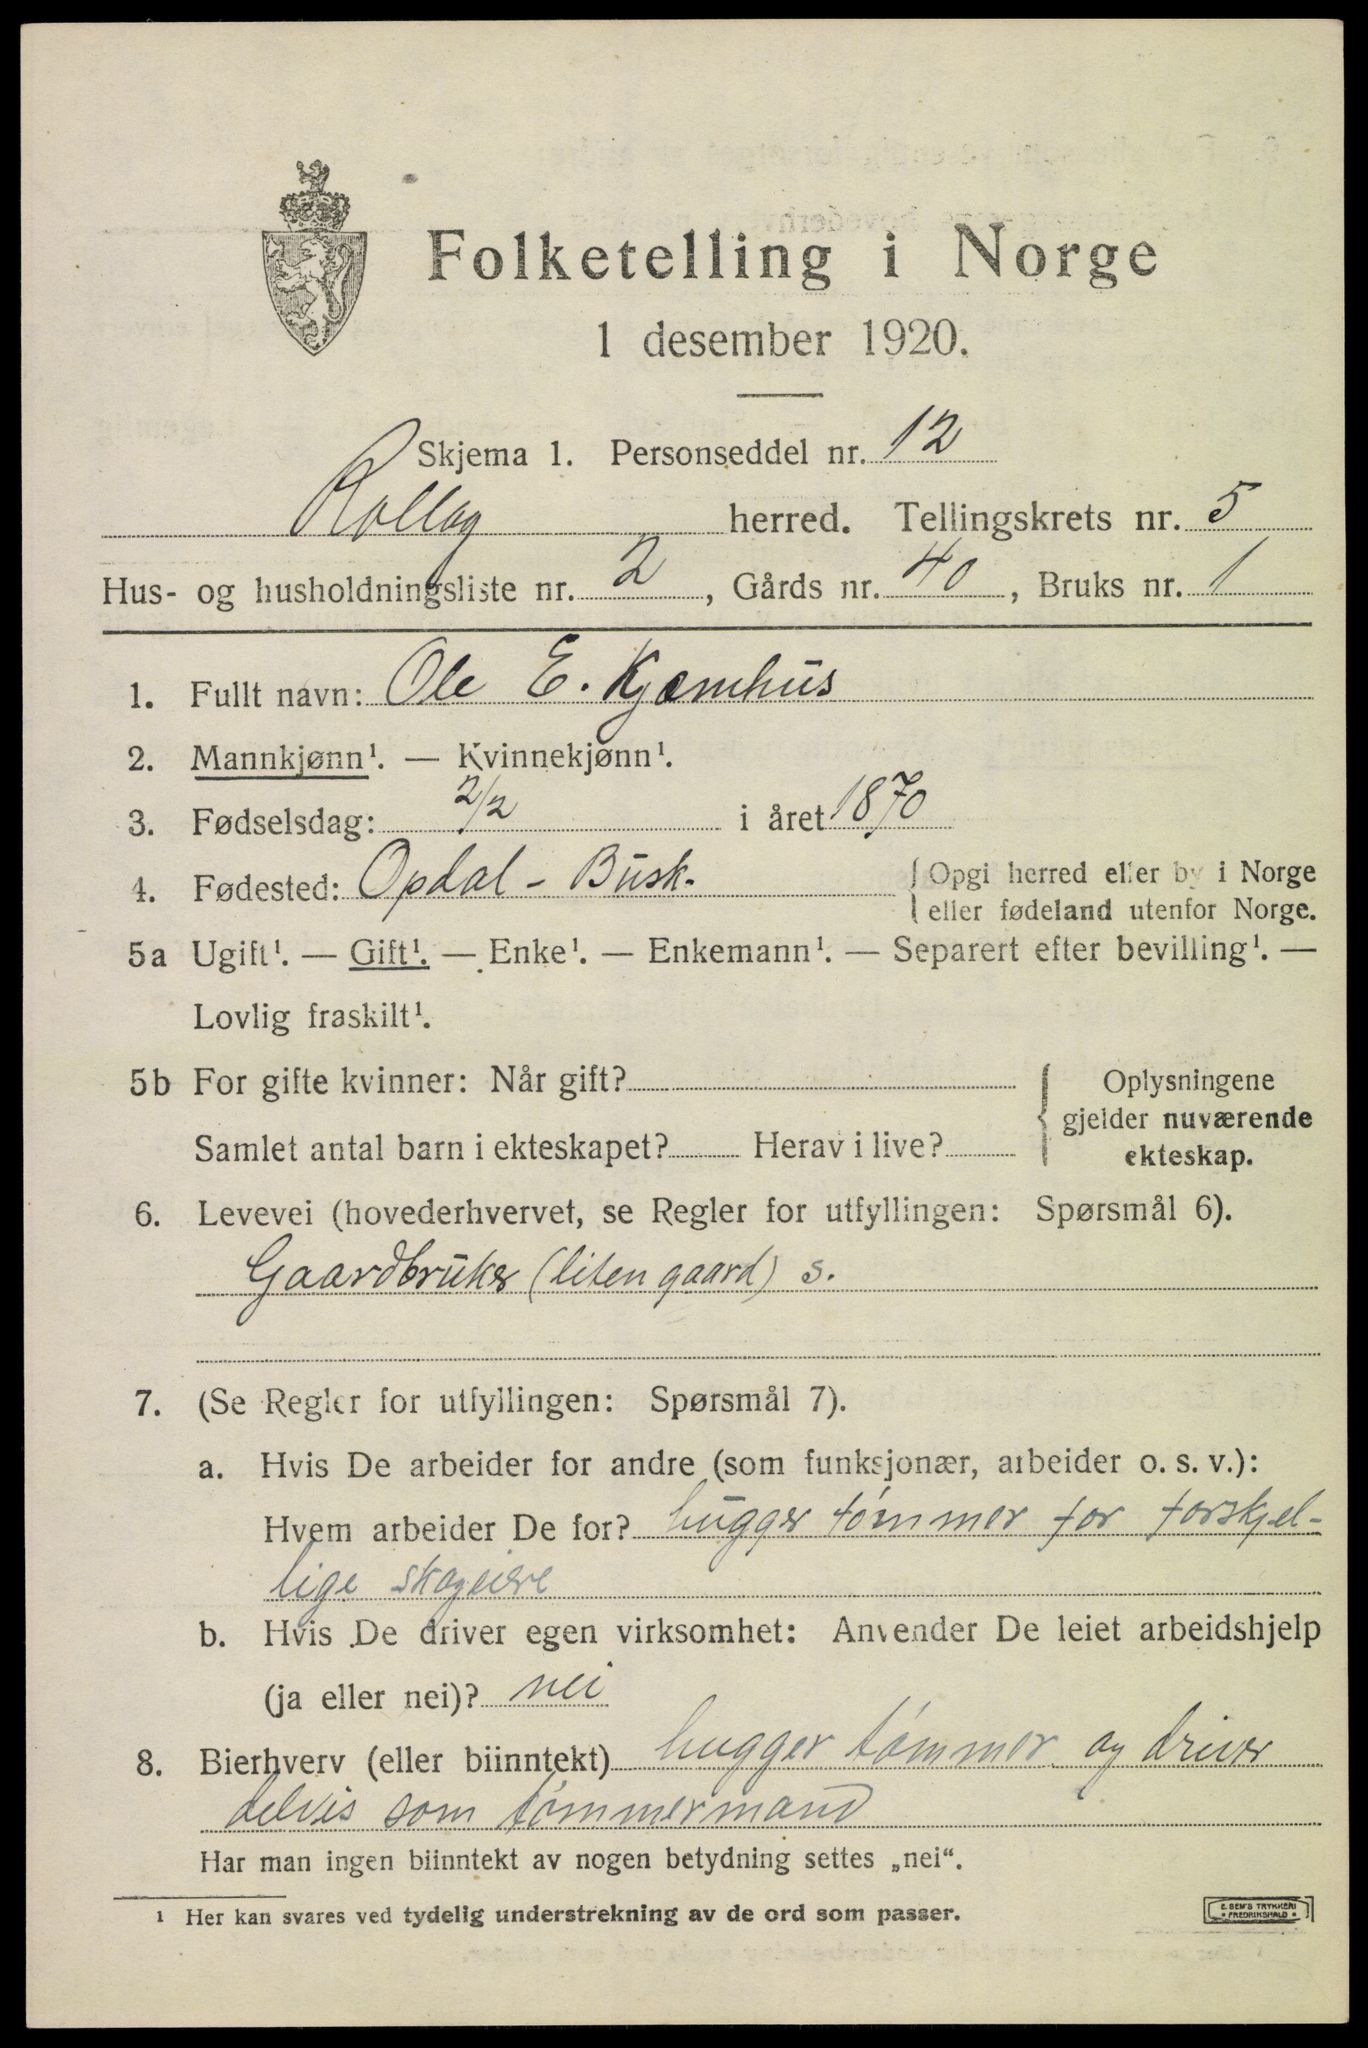 Folketelling i Norge
1 desember 1920.
Skjema 1. Personseddel nr. 12
Rollag herred. Tellingskrets nr. 5
Hus- og husholdningsliste nr. 2, Gårds nr. 40, Bruks nr. 1
1. Fullt navn: Ole E. Kjemhus
2. Mannkjønn¹. — Kvinnekjønn¹.
3. Fødselsdag: 2/2 i året 1870
4. Fødested: Opdal - Busk. { Opgi herred eller by i Norge
eller fødeland utenfor Norge.
5a Ugift¹. — Gift¹. — Enke¹. — Enkemann¹. — Separert efter bevilling¹. —
Lovlig fraskilt¹.
5b For gifte kvinner: Når gift? { Oplysningene
gjelder nuværende
Samlet antal barn i ekteskapet? Herav i live? ekteskap.
6. Levevei (hovederhvervet, se Regler for utfyllingen: Spørsmål 6).
Gaardbruker (liten gaard) s.
7. (Se Regler for utfyllingen: Spørsmål 7).
a. Hvis De arbeider for andre (som funksjonær, arbeider o. s. v.):
Hvem arbeider De for? hugger tømmer for forskjel-
lige skogeiere
b. Hvis De driver egen virksomhet: Anvender De leiet arbeidshjelp
(ja eller nei)? nei
8. Bierhverv (eller biinntekt) hugger tømmer og driver
delvis som tømmermand
Har man ingen biinntekt av nogen betydning settes „nei“.
¹ Her kan svares ved tydelig understrekning av de ord som passer.
E. SEM'S TRYKKERI
* FREDRIKSHALD *